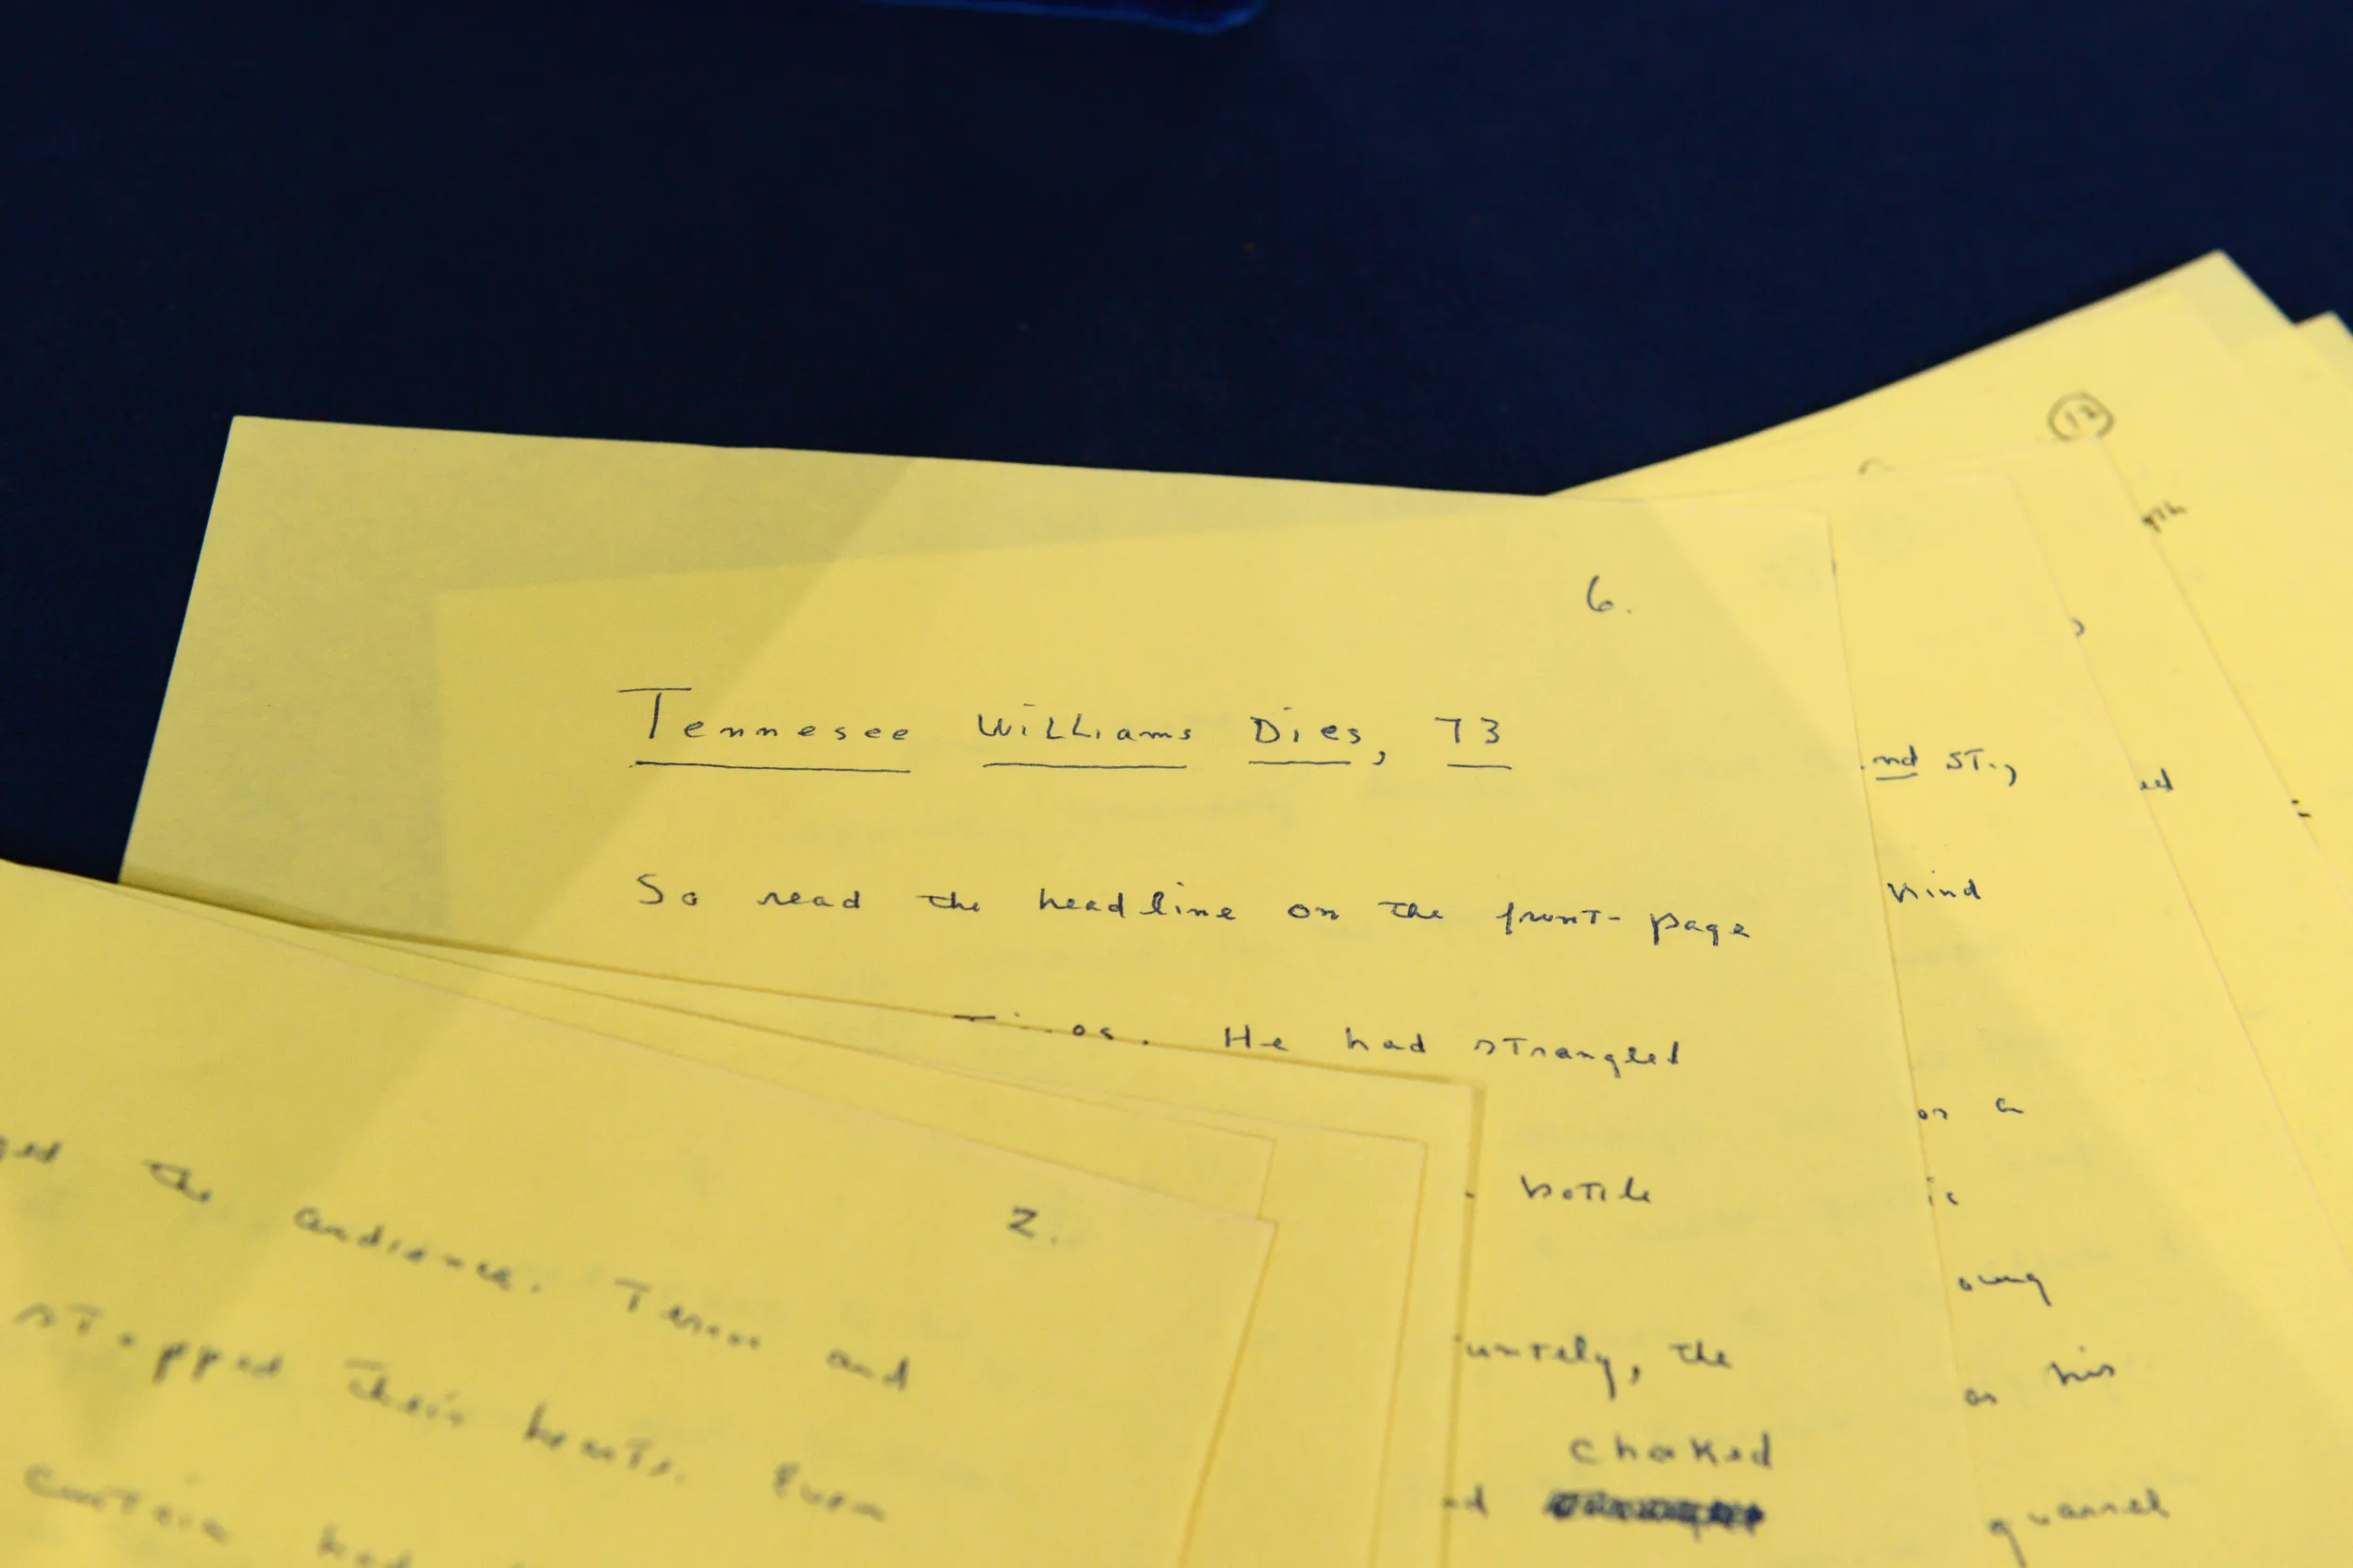 6.
Tennesee Williams Dies, 73
So read the headline on the front-page
He had strangled
bottle
the
choked
12
nd ST.,
kind
on a
as his
quarrel
2.
the audience. Terror and
stopped their hearts. Even
curtain had